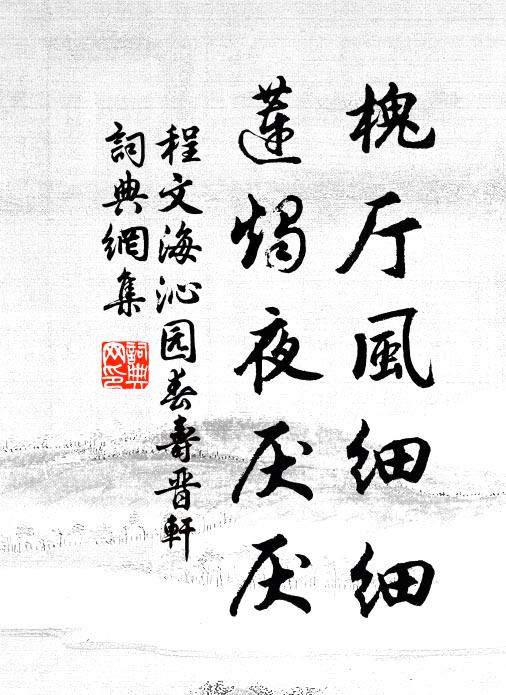 槐厅風細細
蓮燭夜厌厌
程文海沁园春壽晋軒
詞典網集
詞典网印